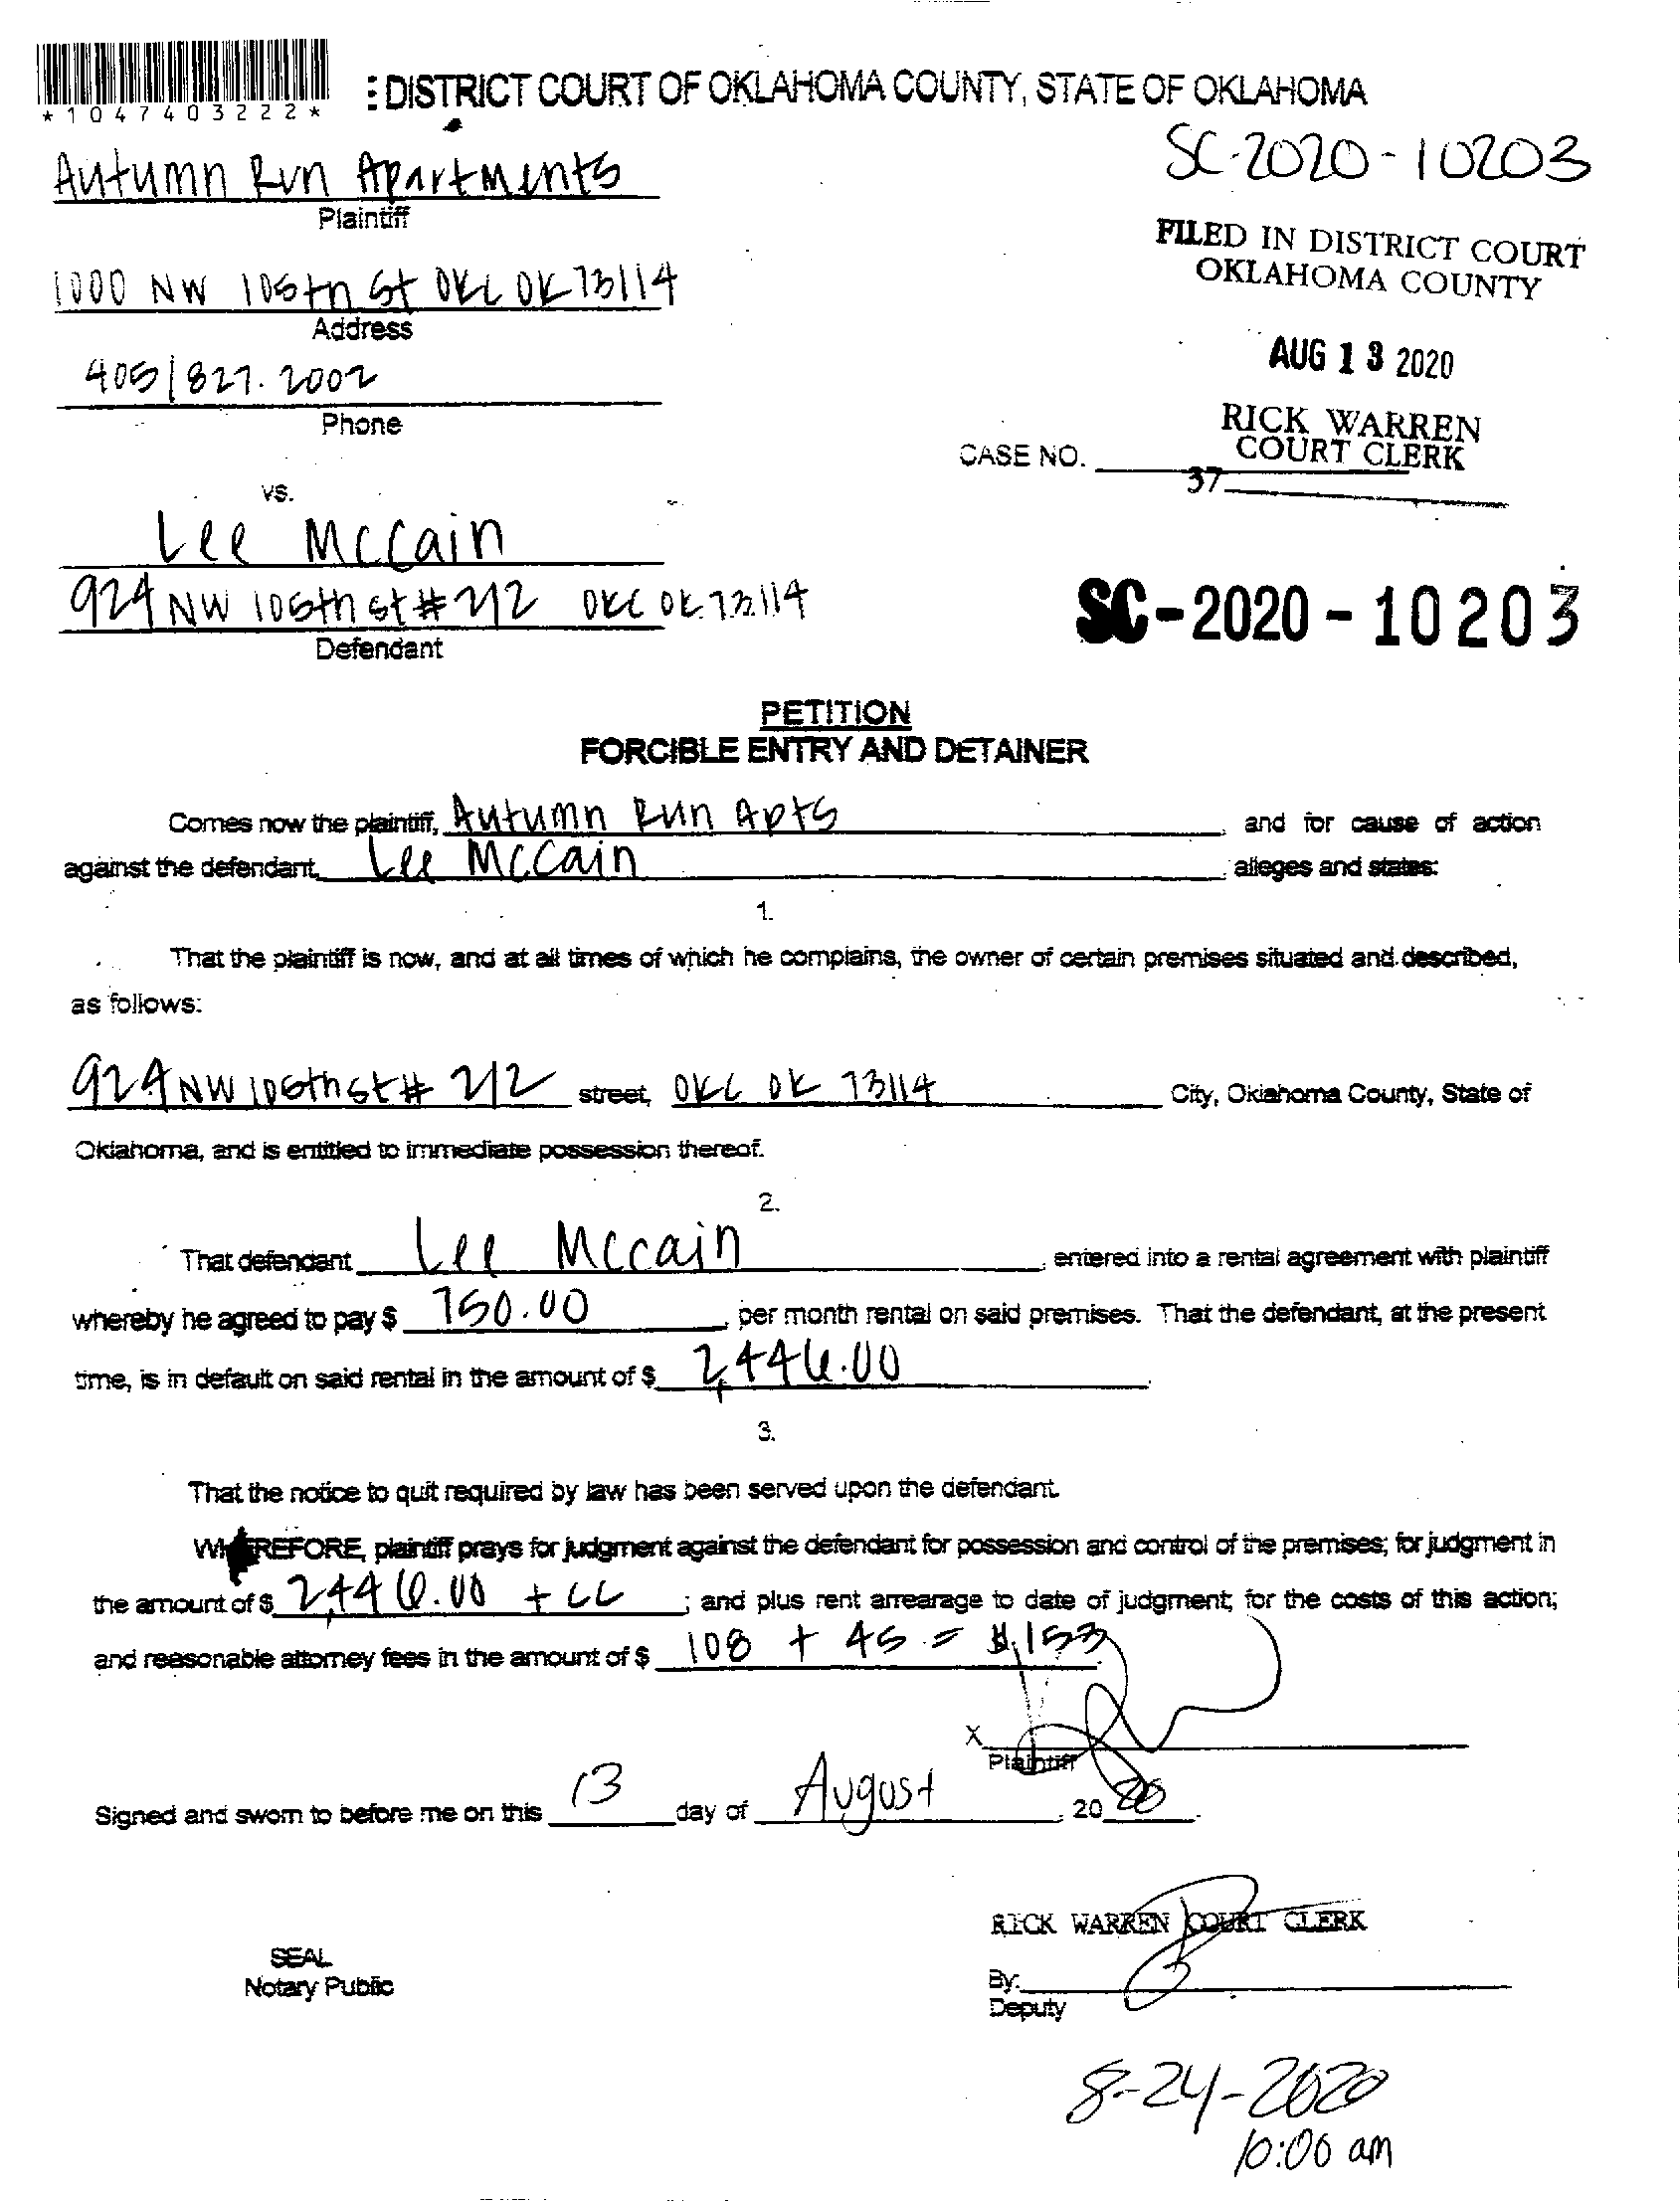 *1047403222*
: DISTRICT COURT OF OKLAHOMA COUNTY, STATE OF OKLAHOMA
SC-2020-10203
Autumn Run Apartments
Plaintiff
FILED IN DISTRICT COURT
OKLAHOMA COUNTY
1000 NW 105th St OKC OK 73114
Address
AUG 13 2020
405/827.2002
Phone
RICK WARREN
COURT CLERK
CASE NO.
37
vs.
Lee McCain
924 NW 106th st # 212 OKC OK 73114
Defendant
SC-2020-10203
PETITION
FORCIBLE ENTRY AND DETAINER
Comes now the plaintiff, Autumn Run Apts, and for cause of action
against the defendant, Lee McCain, alleges and states:
1.
That the plaintiff is now, and at all times of which he complains, the owner of certain premises situated and described,
as follows:
924 NW 106th st # 212 street, OKC OK 73114 City, Oklahoma County, State of
Oklahoma, and is entitled to immediate possession thereof.
2.
That defendant Lee Mccain, entered into a rental agreement with plaintiff
whereby he agreed to pay $ 750.00, per month rental on said premises. That the defendant, at the present
time, is in default on said rental in the amount of $ 2,446.00.
3.
That the notice to quit required by law has been served upon the defendant.
WHEREFORE, plaintiff prays for judgment against the defendant for possession and control of the premises; for judgment in
the amount of $ 2,446.00 + CC; and plus rent arrearage to date of judgment; for the costs of this action;
and reasonable attorney fees in the amount of $ 108 + 45 = $153
X
Plaintiff
Signed and sworn to before me on this 13 day of August, 20 20.
RICK WARREN COURT CLERK
SEAL
Notary Public
By:
Deputy
8-24-2020
10:00 am